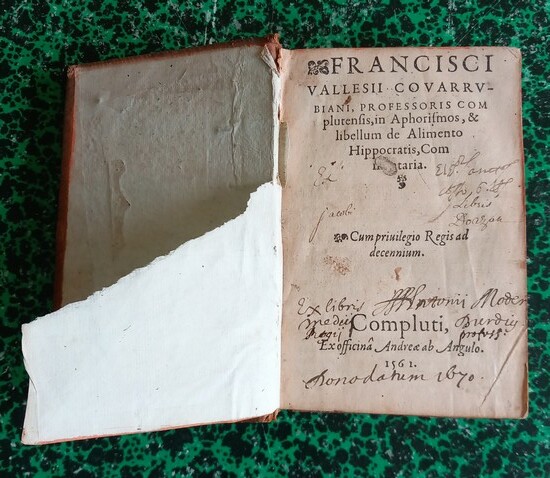 FRANCISCI
VALLESII COVARRV-
BIANI, PROFESSORIS COM
plutensis, in Aphorismos, &
libellum de Alimento
Hippocratis, Com
taria.
Ex
Jacobi
Libris
Cum priuilegio Regis ad
decennium.
Ex libris Antonii Moder
medici
Regii
Compluti,
Ex officina Andreæ ab Angulo.
1561.
Dono datum 1670.